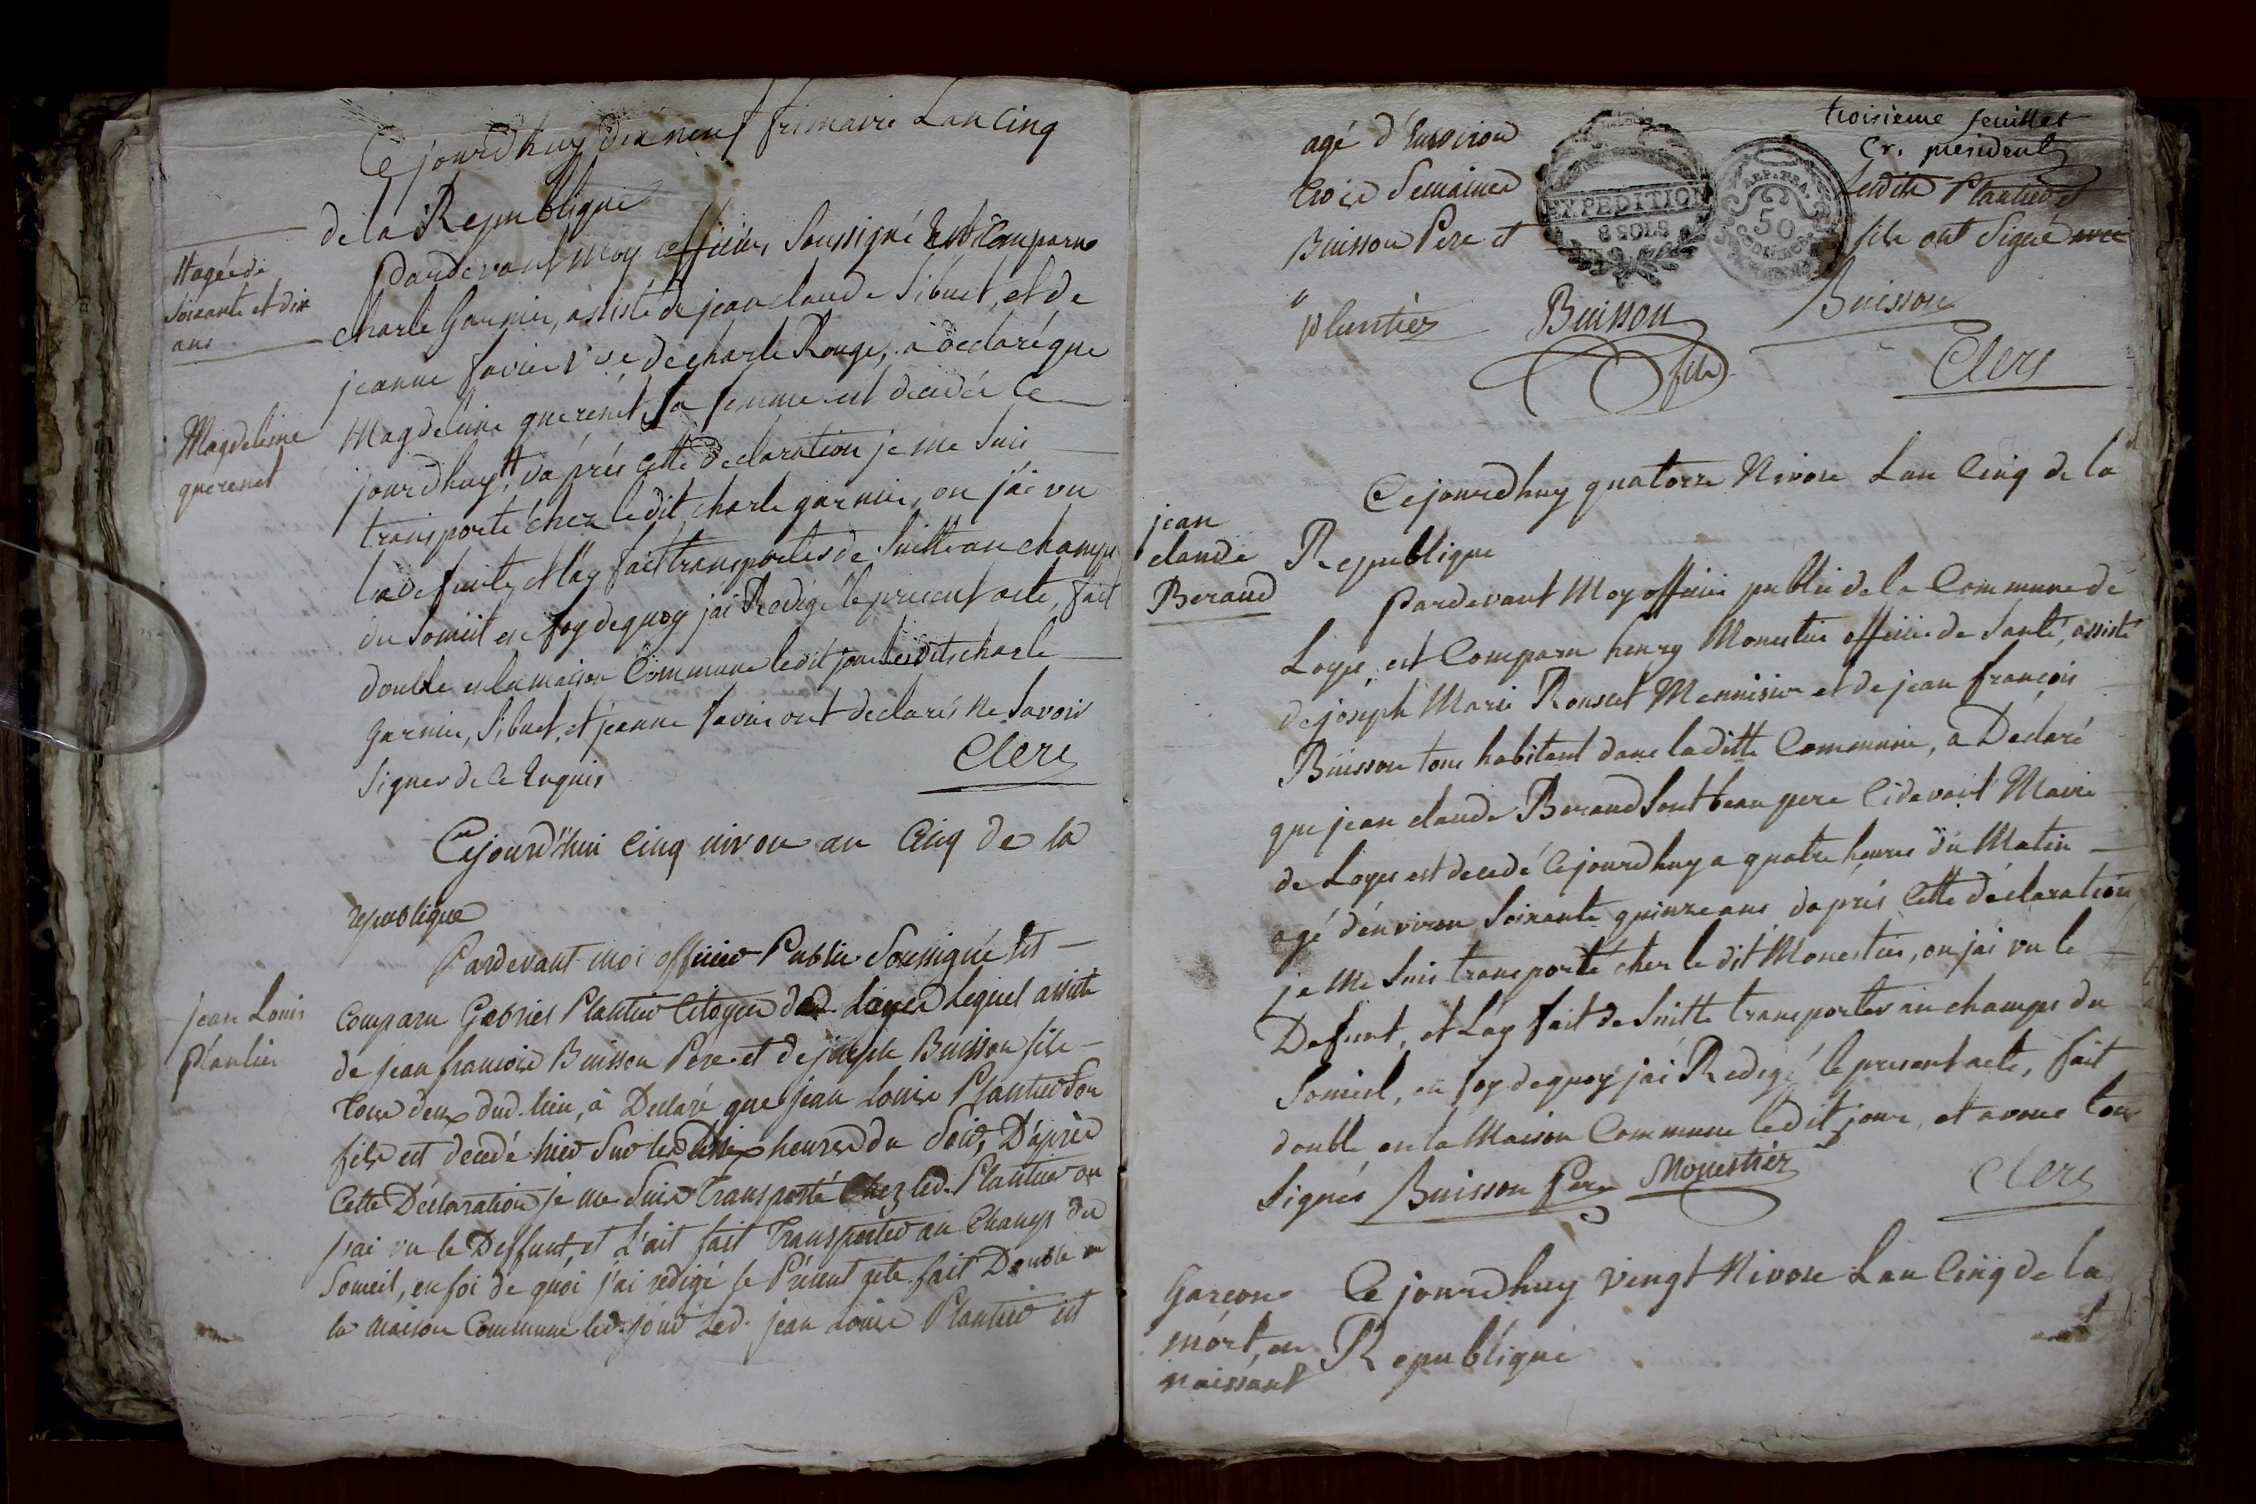 Ce jourdhuy dixneuf frimaire Lan Cinq
de la Republique
Pardevant moy officier Soussigné Est Comparu
charle Garnier, assisté de jean claude Sibuet, et de
jeanne favier v.ve de charle Rouge, a declaré que
Magdeleine guerenet Sa femme est decedée Ce
jourdhuy # da prés cette declaration je me Suis
transporté chez le dit charle garnier, ou j'ai vu
la defunte, et l'ay fait transporter de Suitte au champs
du Someil en foy de quoy jai Redigé le present acte, fait
double en la maison Commune ledit jour lesdits charle
garnier, Sibuet, et jeanne favier ont déclarés ne Savoir
signer de Ce Enquis
Clerc
# agée de
Soixante et dix
ans
Magdeleine
guerenet
Cejourd'hui Cinq nivose an Cinq de la
republique
Pardevant moi officier Public Soussigné Est
Comparu Gabriel Plantier Citoyen de Loyes Lequel assisté
de jean francois Buisson Pere et de joseph Buisson fils
Tous deux dud. lieu, à Declaré que jean Louis Plantier Son
fils est decedé hier Sur les dix heures du Soir, D'après
Cette Déclaration je me Suis Transporté Chez led. Plantier ou
j'ai vu le Deffunt, et L'ait fait Transporter au Champs du
Someil, en foi de quoi j'ai redigé le Présent acte fait Double en
la maison Commune led. jour Led. jean Louis Plantier est
jean Louis
Plantier
troisieme feuillet
Cr. président
agé d'Environ
Trois Semaines Ledit Plantier et
Buisson Pere et fils ont Signé avec
EXPEDITION
8 SOLS
REP. FRA.
50
plantier Buisson fils Buisson
Clerc
Cejourdhuy quatorze Nivose Lan Cinq de la
Republique
jean
claude
Beraud
Pardevant Moy officier public de la Commune de
Loyes, est Comparu henry Monestier officier de Santé, assisté
de joseph Marie Rousset Menuisier et de jean françois
Buisson tous habitant dans laditte Commune, a Déclaré
que jean claude Beraud Sont beau pere Cidevant Maire
de Loyes est decedé Cejourdhuy a quatre heures du Matin
agé d'environ Soixante quinze ans daprés Cette déclaration
je Me Suis transporté chez le dit Monestier, ou jai vu le
Defunt, et Lay fait de Suitte transporter au champs du
Someil, en foy de quoy jai Redigé le present acte, fait
double en la Maison Commune ledit jour, et avons tous
Signés Buisson Pere Monestier
Clerc
Garçon
mort, en
naissant
Ce jourdhuy vingt Nivose Lan Cinq de la
Republique